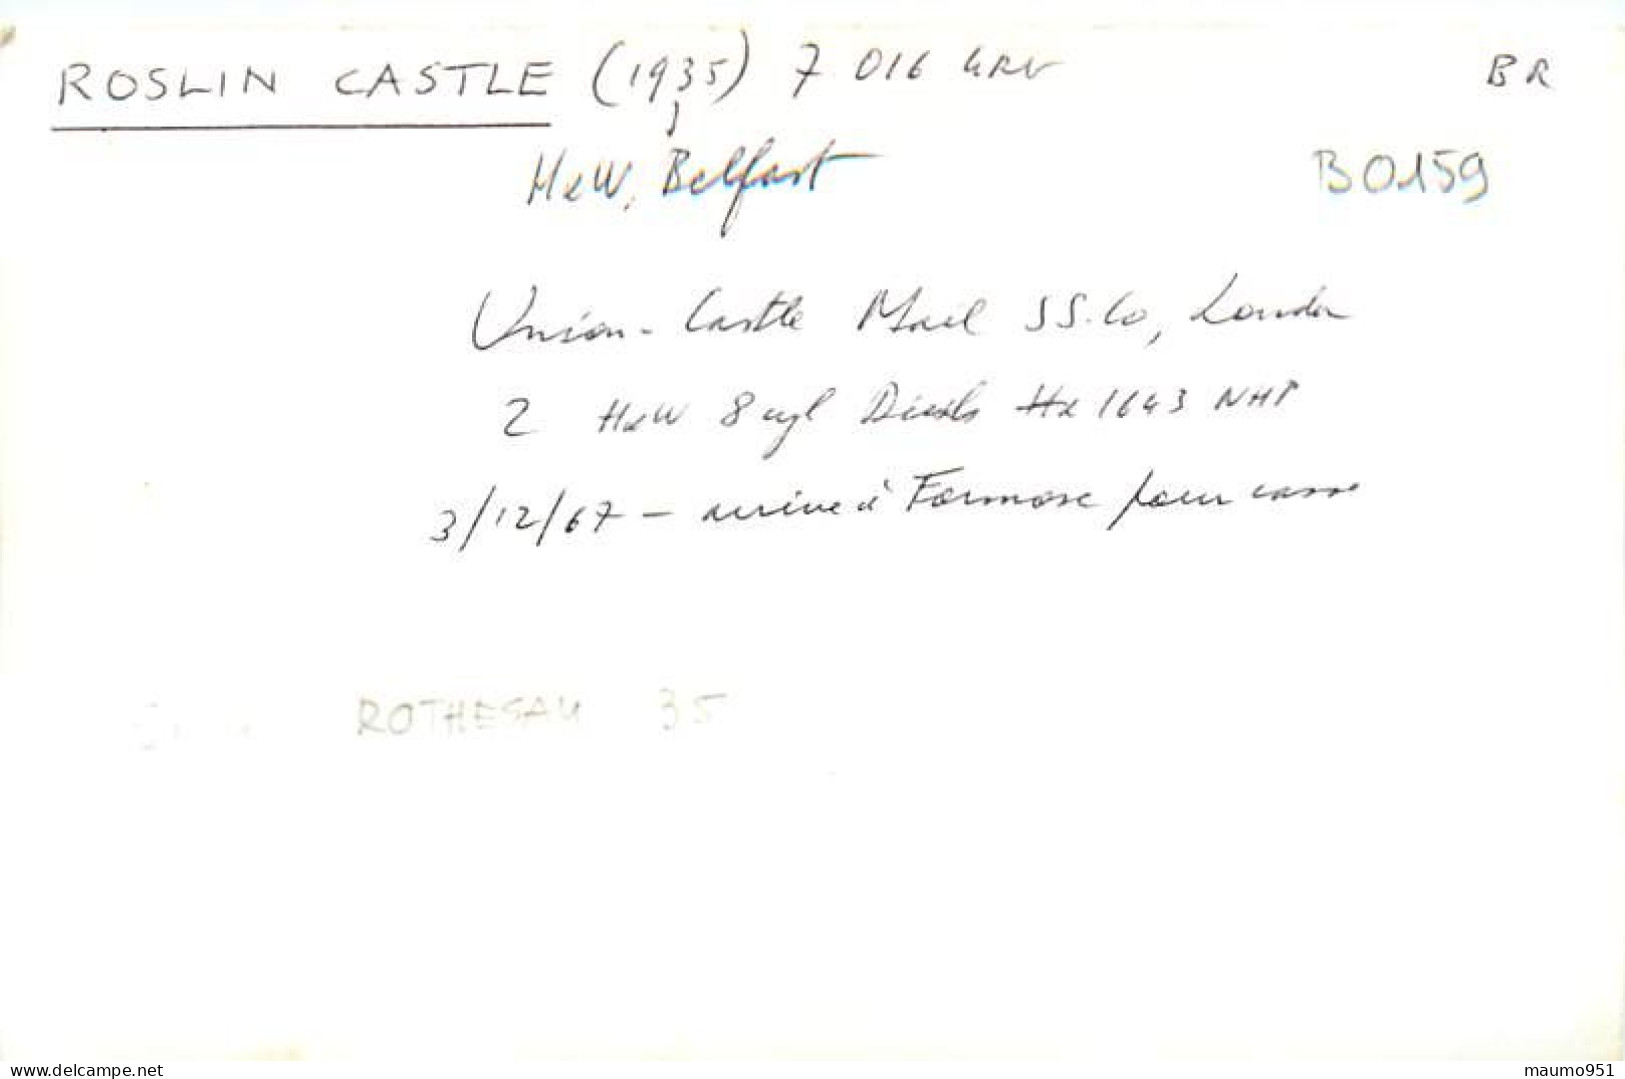 ROSLIN CASTLE (1935) 7 016 GRT BR
H&W, Belfast B0159
Union-Castle Mail SS.Co, London
2 H&W 8 cyl Diesels 1643 NHP
3/12/67 - arrive à Formose pour casse
ROTHESAY 35
delcampe.net maumo951